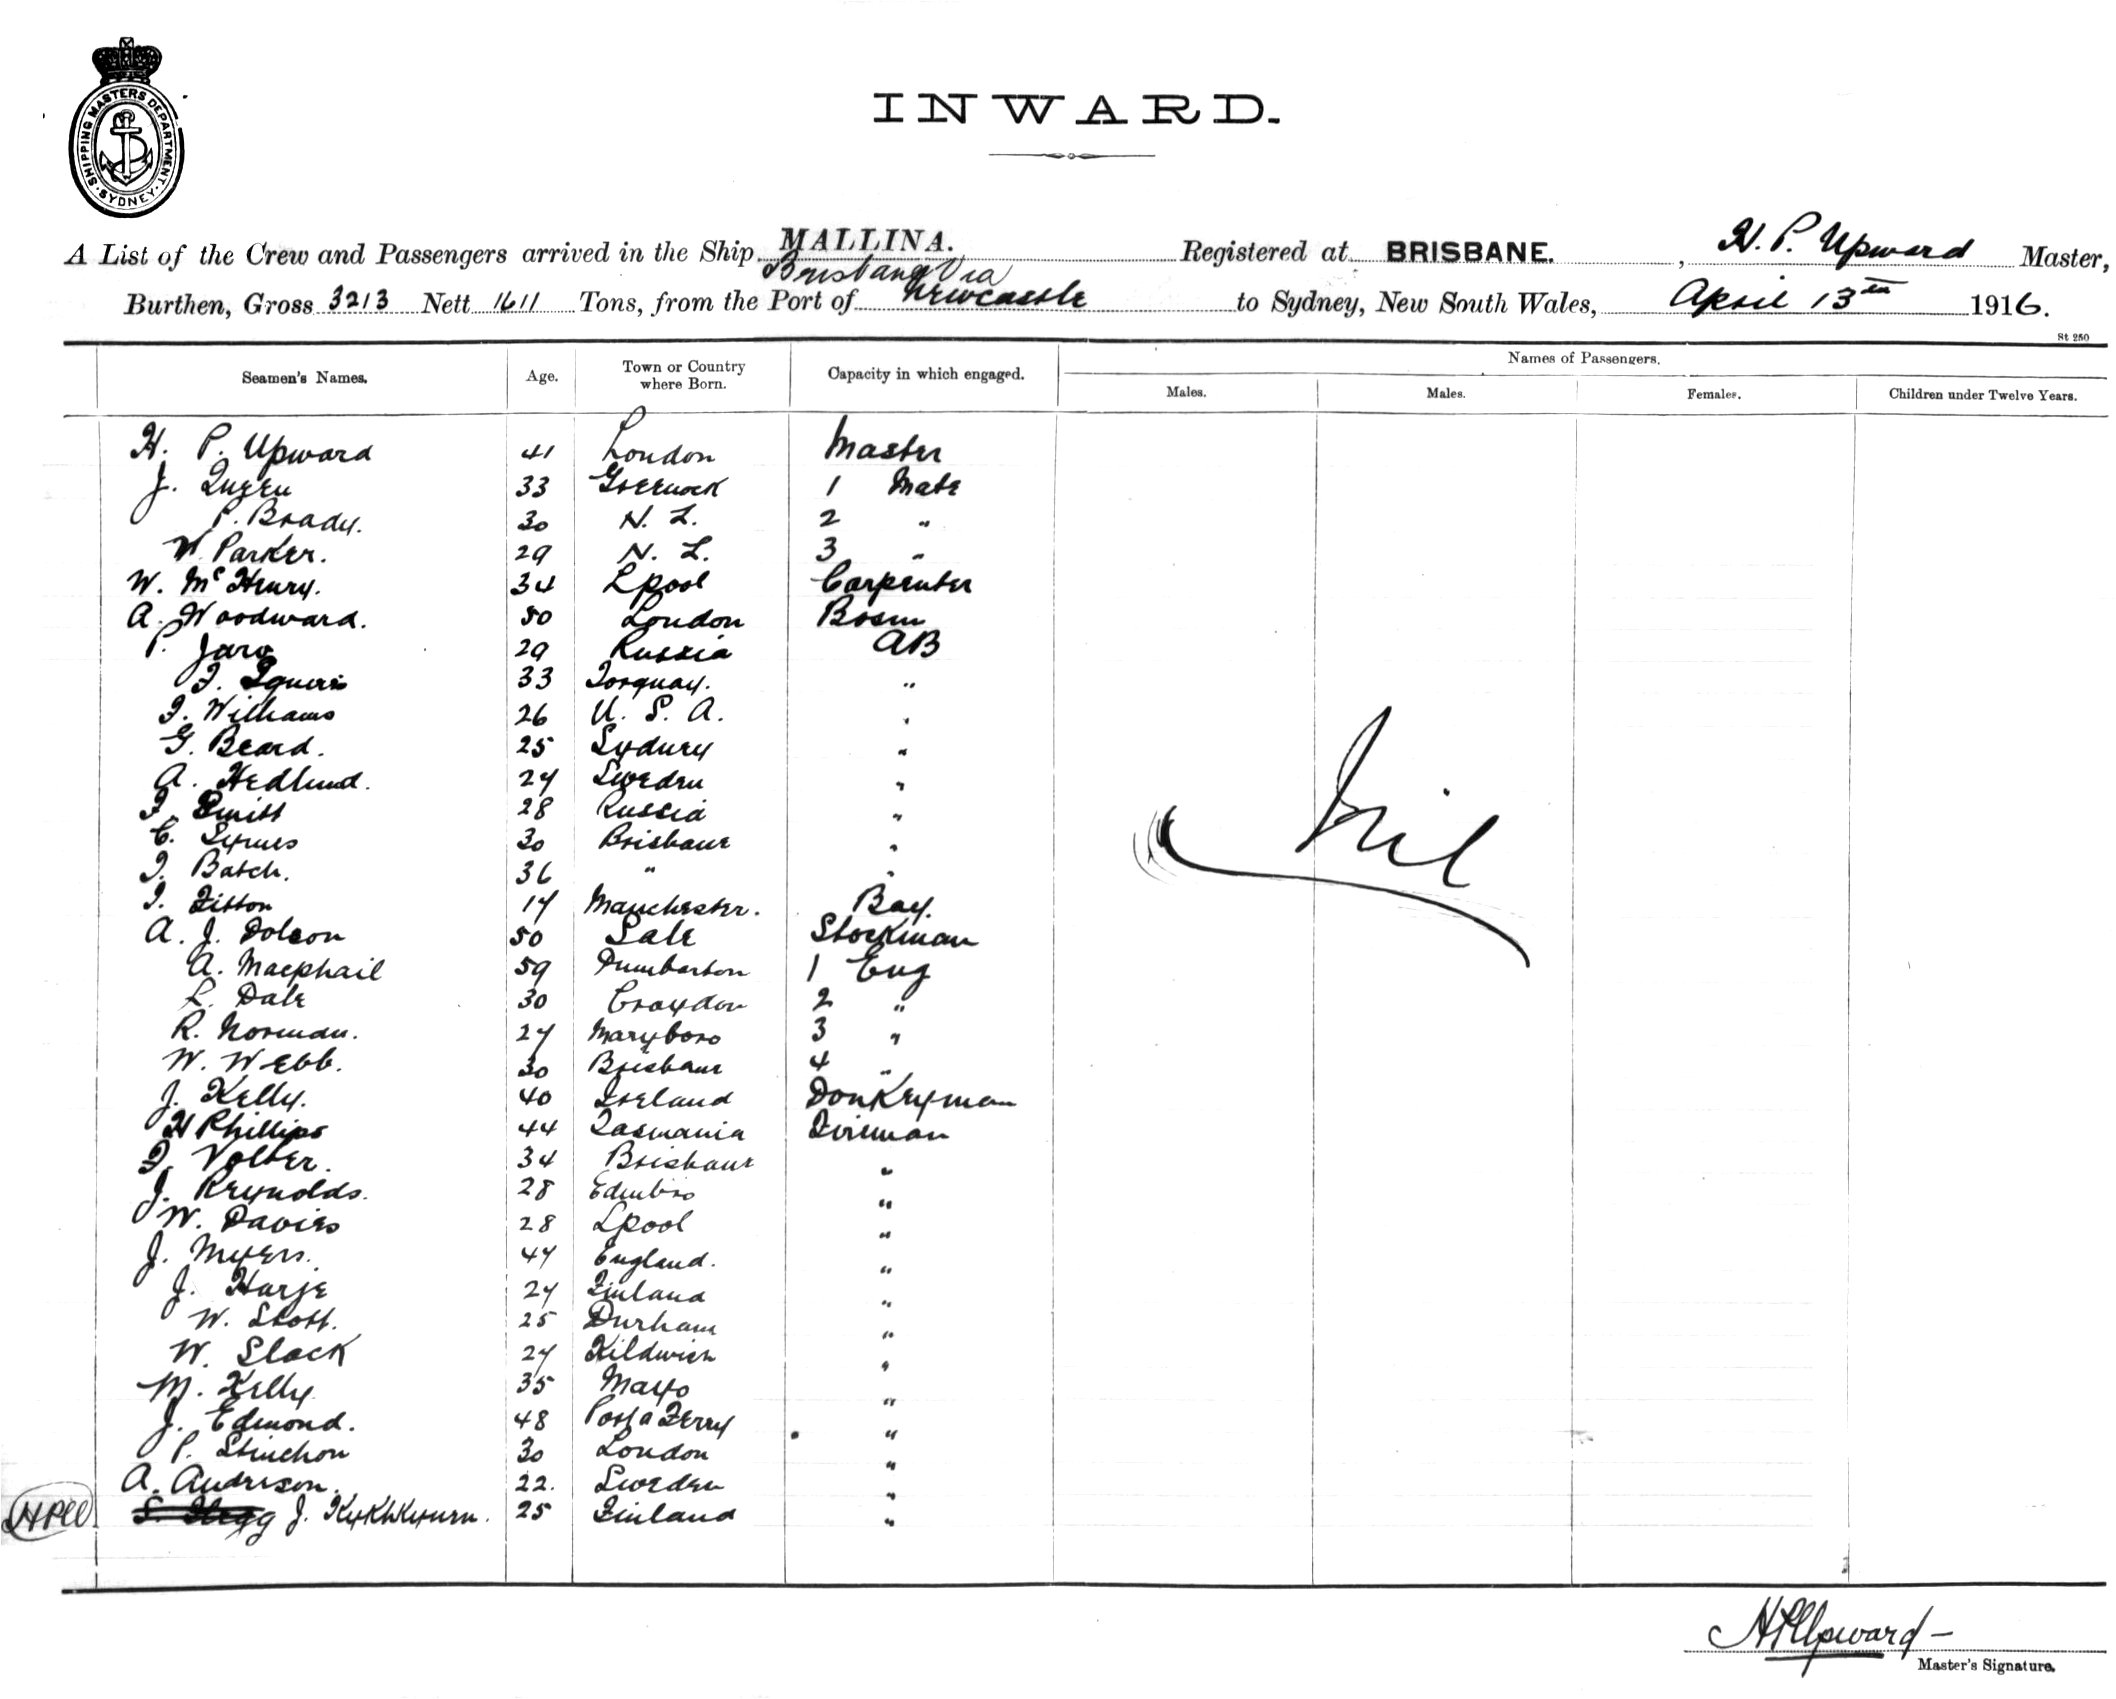 SHIPPING MASTERS DEPARTMENT
· SYDNEY ·
INWARD.
A List of the Crew and Passengers arrived in the Ship MALLINA. Registered at BRISBANE. , H. P. Upward Master,
Brisbane Via
Burthen, Gross 3213 Nett 1611 Tons, from the Port of Newcastle to Sydney, New South Wales, April 13th 1916.
St 250
Seamen's Names. Age. Town or Country where Born. Capacity in which engaged. Names of Passengers.
Males. Males. Females. Children under Twelve Years.
H. P. Upward 41 London Master
J. Queen 33 Greenock 1 Mate
P. Brady. 30 N. Z. 2 "
W. Parker. 29 N. Z. 3 "
W. McHenry. 34 Lpool Carpenter
A. Woodward. 50 London Bosun
P. Jarv 29 Russia AB
F. Squers 33 Torquay. "
T. Williams 26 U. S. A. "
G. Beard. 25 Sydney "
A. Hedlund. 24 Sweden "
F. Smitt 28 Russia "
C. Symes 30 Brisbane "
T. Batch. 36 " "
T. Fitton 17 Manchester. Boy.
A. J. Dobson 50 Sale Stockman
A. Macphail 59 Dumbarton 1 Eng
L. Dale 30 Croydon 2 "
R. Norman. 27 Maryboro 3 "
W. Webb. 30 Brisbane 4 "
J. Kelly. 40 Ireland Donkeyman
H Phillips 44 Tasmania Fireman
F. Volter. 34 Brisbane "
J. Reynolds. 28 Edinbro "
W. Davies 28 Lpool "
J. Myers. 47 England. "
J. Harje 24 Finland "
W. Stott. 25 Durham "
W. Slack 24 Kildwick "
M. Kelly. 35 Mayo "
J. Edmond. 48 Porta Ferry "
P. Stinchon 30 London "
A. Anderson. 22. Sweden "
HPU J. 25 Finland "
Nil
H P Upward
Master's Signature.